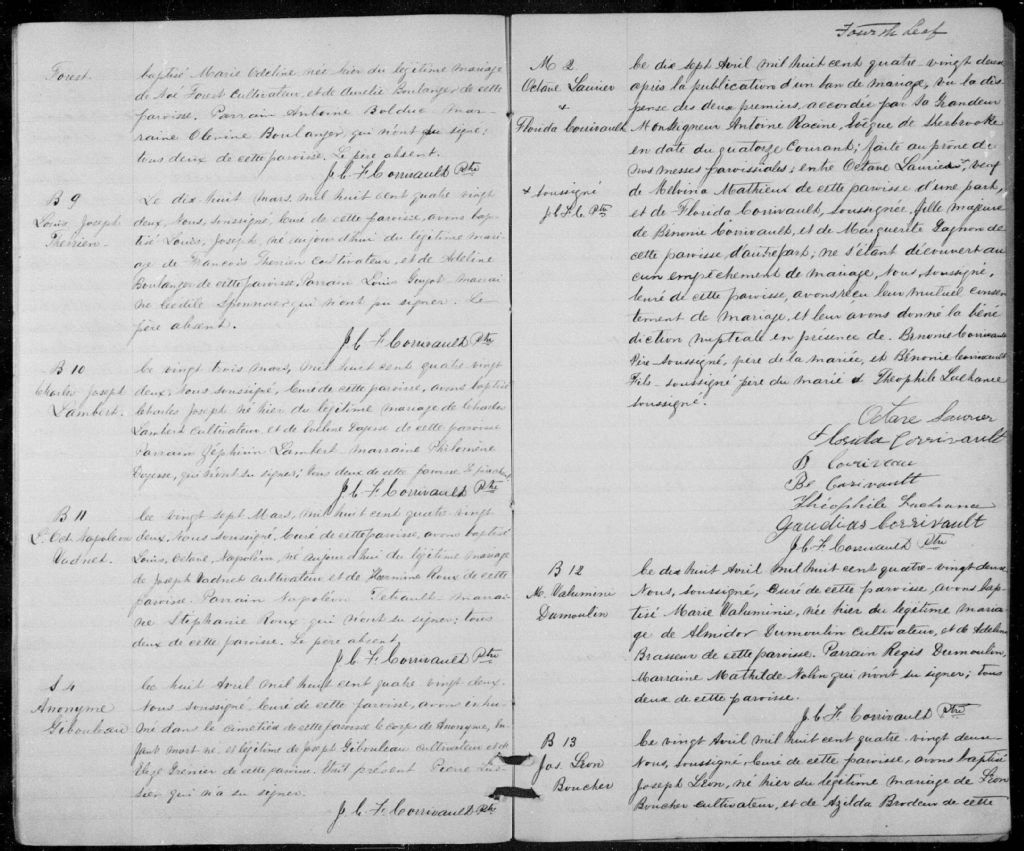 Forest.
baptisé Marie née hier du légitime mariage
de Noé Forest Cultivateur, et de Aurélie Boulanger de cette
paroisse. Parrain Antoine Bolduc mar-
raine Olevine Boulanger qui n'ont su signer;
tous deux de cette paroisse. Le père absent.
J. C. F. Corrivault Ptre
B 9
Louis Joseph
Therrien
Le dix huit Mars, mil huit cent quatre vingt
deux, Nous, soussigné, Curé de cette paroisse, avons bap-
tisé Louis, Joseph, né aujourd'hui du légitime mari-
age de François Therrien Cultivateur, et de Adeline
Boulanger de cette paroisse, Parrain Louis Goyet marrai
ne qui n'ont pu signer. Le
père absent.
J. C. F. Corrivault Ptre
B 10
Charles Joseph
Lambert.
Ce vingt trois Mars, mil huit cent quatre vingt
deux, Nous soussigné, Curé de cette paroisse, avons baptisé
Charles Joseph né hier du légitime mariage de Charles
Lambert Cultivateur, et de Eveline de cette paroisse
Parrain Zéphirin Lambert marraine Philomène
qui n'ont su signer; tous deux de cette paroisse Le père absent
J. C. F. Corrivault Ptre
B 11
L. Oct. Napoléon
Vadnet.
Ce vingt sept Mars, mil huit cent quatre vingt
deux, Nous soussigné, Curé de cette paroisse, avons baptisé
Louis, Octave, Napoléon, né aujourd'hui du légitime mariage
de Joseph Vadnet Cultivateur et de Hermine Roux de cette
paroisse. Parrain Napoléon Tetrault marrai-
ne Stephanie Roux qui n'ont su signer; tous
deux de cette paroisse. Le père absent,
J. C. F. Corrivault Ptre
S. 4
Anonyme
Gibouleau
Ce huit Avril mil huit cent quatre vingt deux.
Nous soussigné, Curé de cette paroisse, avons inhu-
mé dans le cimetière de cette paroisse le corps de Anonyme, en-
fant mort né et légitime de Joseph Gibouleau cultivateur et de
Elize Grenier de cette paroisse. Etait présent Pierre Lus-
sier qui n'a su signer.
J. C. F. Corrivault Ptre
Fourth Leaf
M 2
Octave Laurier
&
Florida Corrivault
+ soussigné
J. C. F. C. Ptre
Ce dix sept Avril mil huit cent quatre vingt deux
après la publication d'un ban de mariage, vu la dis-
pense des deux premiers, accordée par Sa Grandeur
Monseigneur Antoine Racine, Evêque de Sherbrooke
en date du quatorze Courant; faite au prône de
nos messes paroissiales; entre Octave Laurier+, veuf
de Melvina Mathieux de cette paroisse d'une part,
et de Florida Corrivault, soussignée, fille majeure
de Bénonie Corrivault, et de Marguerite Gagnon de
cette paroisse d'autre part; ne s'étant découvert au
cun empêchement de mariage, Nous, soussigné,
Curé de cette paroisse, avons reçu leur mutuel consen
tement de mariage, et leur avons donné la béné
diction nuptiale en présence de. Bénonie Corrivault
Père soussigné, père de la mariée, et Bénonie Corrivault
Fils - soussigné père du marié & Théophile Lachance
soussigné.
Octave Laurier
Florida Corrivault
B Corriveau
Be Corivault
Théophile Lachance
Gaudias Corrivault
J. C. F. Corrivault Ptre
B 12
M. Valuminie
Dumoulin
Ce dix huit Avril mil huit cent quatre-vingt deux
Nous, soussigné, Curé de cette paroisse, avons bap-
tisé Marie Valuminie, née hier du légitime maria
ge de Almidor Dumoulin Cultivateur, et de Adeline
Brasseur de cette paroisse. Parrain Regis Dumoulin,
Marraine Mathilde Nolin qui n'ont su signer; tous
deux de cette paroisse.
J. C. F. Corrivault Ptre
B 13
Jos. Léon
Boucher
Ce vingt Avril mil huit cent quatre vingt deux
Nous, soussigné Curé de cette paroisse, avons baptisé
Joseph Léon, né hier du légitime mariage de Léon
Boucher cultivateur, et de Azilda Brodeur de cette